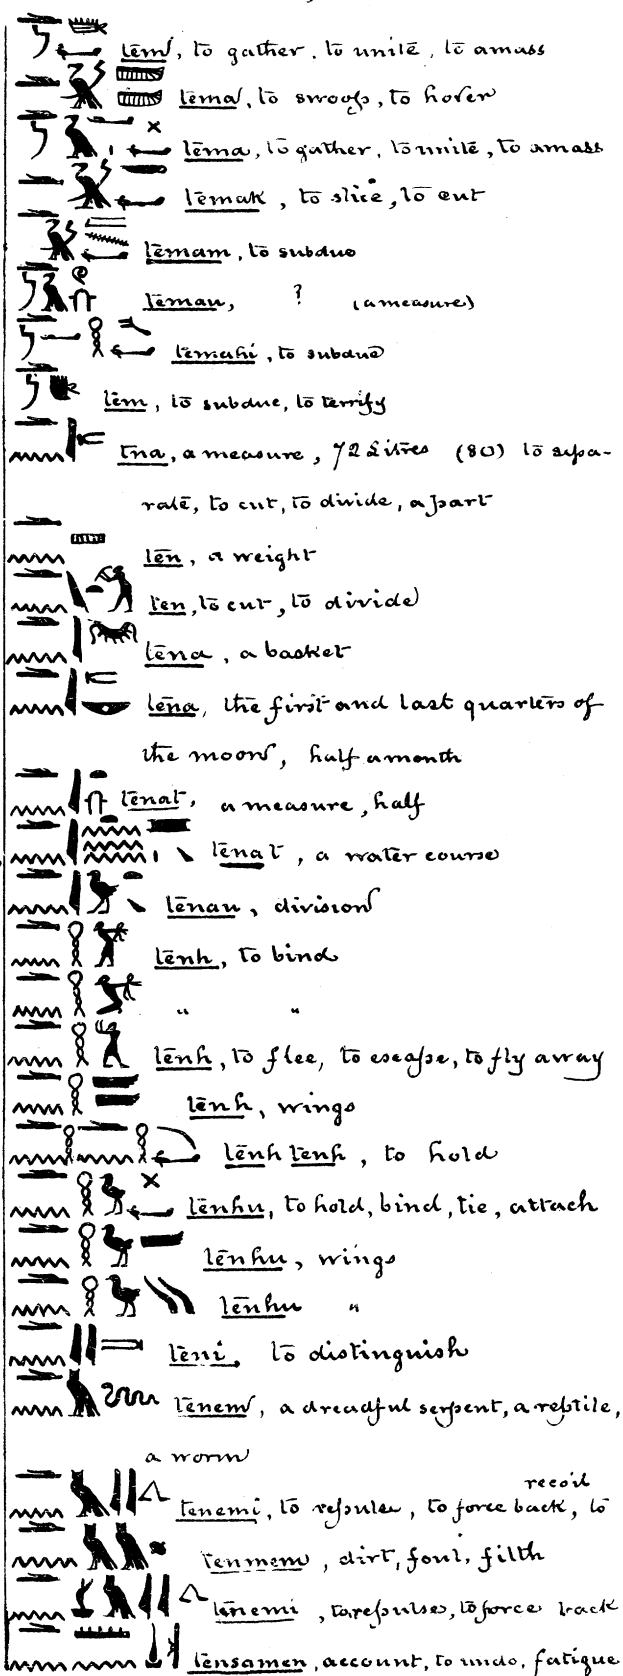 tem, to gather, to unite, to amass
tema, to swoop, to hover
tema, to gather, to unite, to amass
temak, to slice, to cut
temam, to subdue
temau, ? (a measure)
temahi, to subdue
tem, to subdue, to terrify
tna, a measure, 72 Litres (80) to sepa-
rate, to cut, to divide, a part
ten, a weight
ten, to cut, to divide
tena, a basket
tena, the first and last quarters of
the moon, half a month
tenat, a measure, half
tenat, a water course
tenau, division
tenh, to bind
" "
tenh, to flee, to escape, to fly away
tenh, wings
tenh tenh, to hold
tenhu, to hold, bind, tie, attach
tenhu, wings
tenhu "
teni, to distinguish
tenem, a dreadful serpent, a reptile,
a worm
recoil
tenemi, to repulse, to force back, to
tenmem, dirt, foul, filth
tenemi, to repulse, to force back
tensamen, account, to undo, fatigue